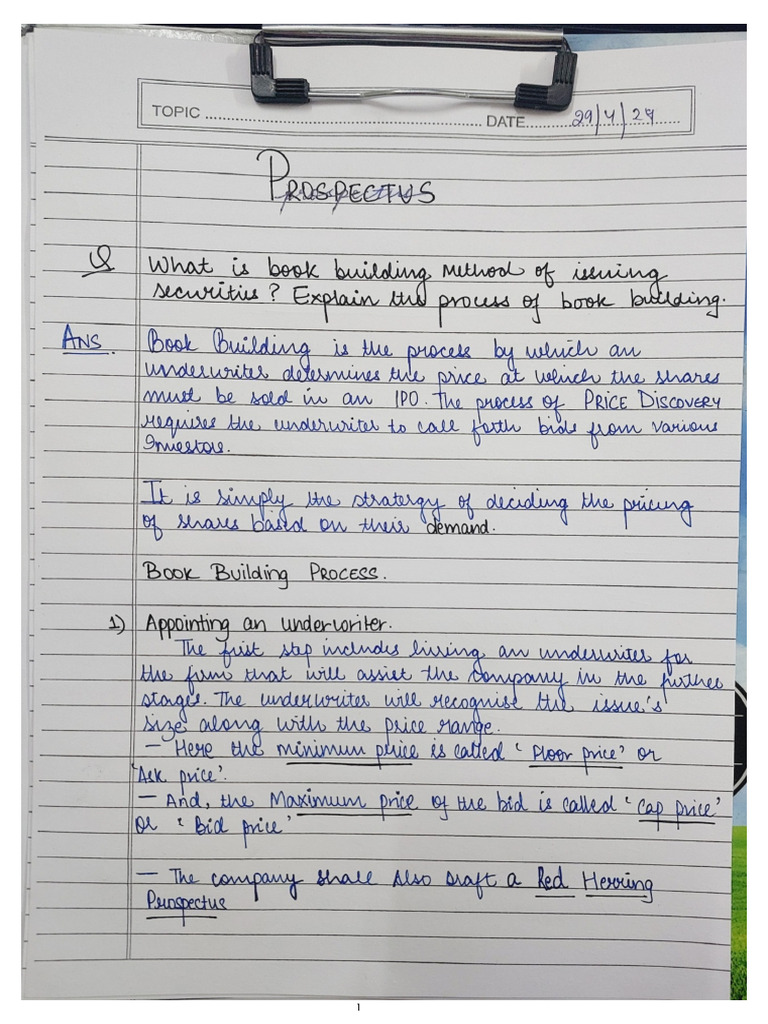 TOPIC ........ DATE........ 29/4/24
PROSPECTUS
Q What is book building method of issuing
securities? Explain the process of book building.
ANS. Book Building is the process by which an
underwriter determines the price at which the shares
must be sold in an IPO. The process of PRICE DISCOVERY
requires the underwriter to call forth bids from various
Investors.
It is simply the stratergy of deciding the pricing
of shares based on their demand.
BOOK BUILDING PROCESS.
1) Appointing an underwriter.
The first step includes hiring an underwriter for
the firm that will assist the company in the further
stages. The underwriter will recognise the issue's
size along with the price range.
— Here the minimum price is called 'Floor price' or
'Ask price'.
— And, the Maximum price of the bid is called 'Cap price'
or 'Bid price'
— The company shall also draft a Red Herring
Prospectus
1